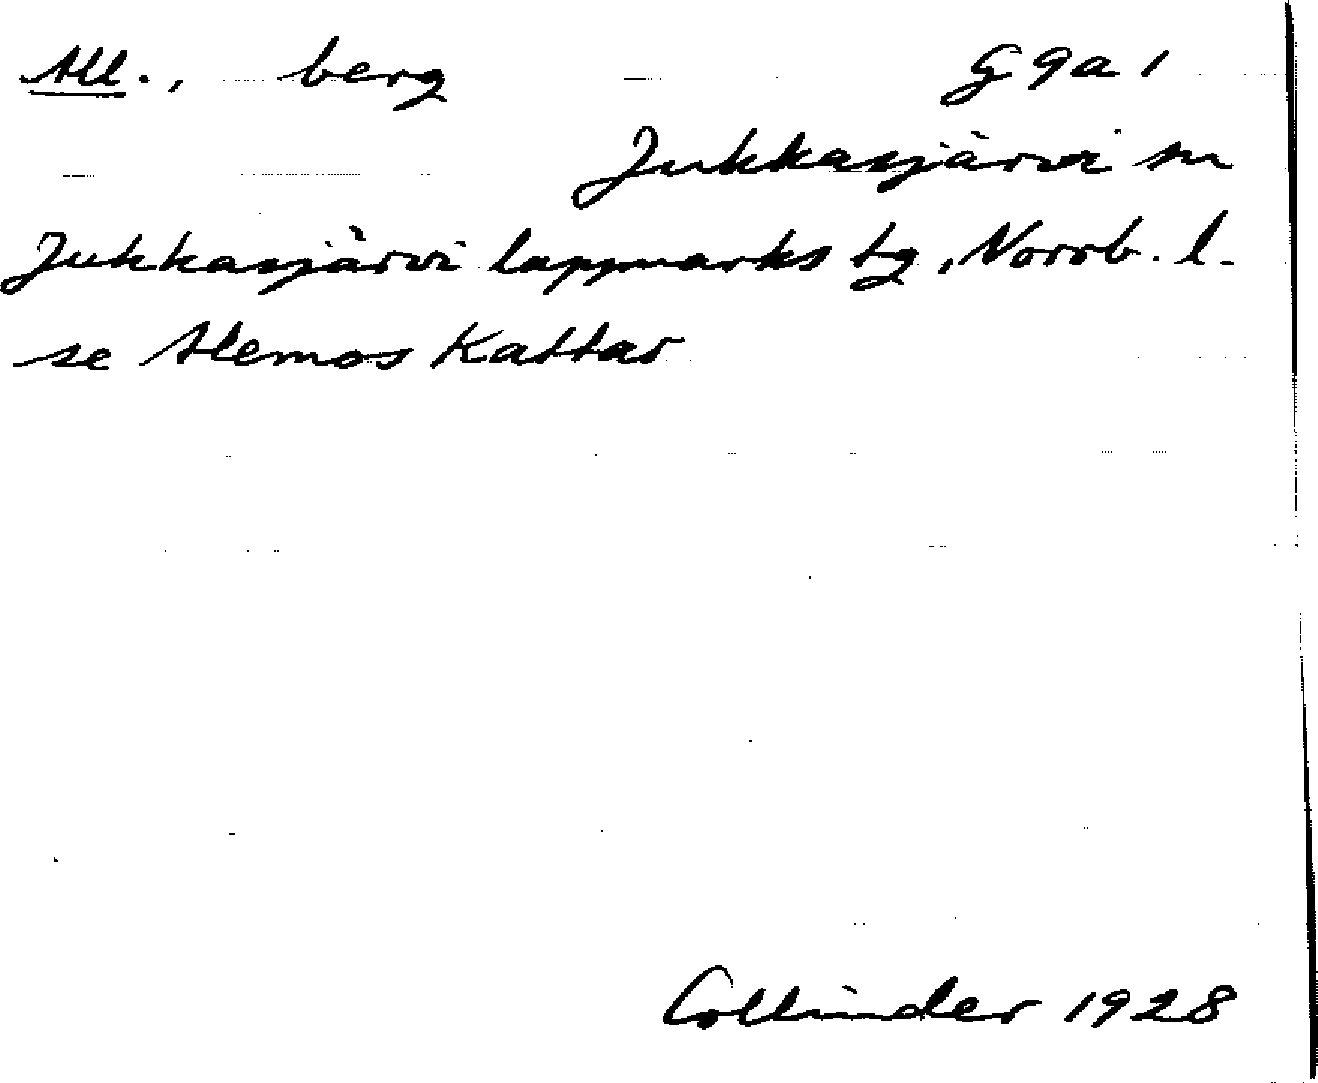 All., berg G 9 a 1
Jukkasjärvi sn
Jukkasjärvi lappmarks tg, Norrb. l.
se Alemos Kattar
Collinder 1928